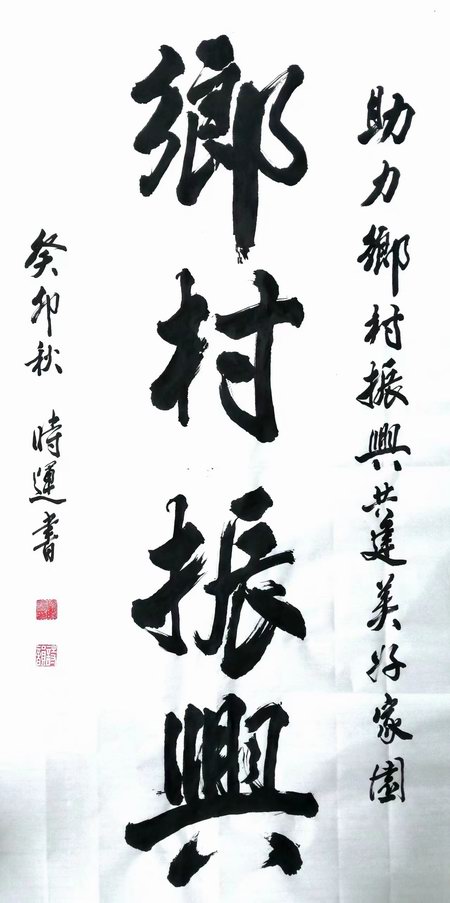 助力鄉村振興共建美好家園
鄉村振興
癸卯秋 時運書